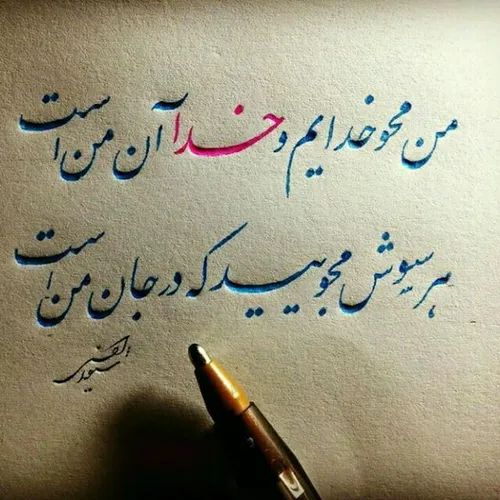 من محو خدایم و خدا آن من است
هر سوش مجویید که در جان من است